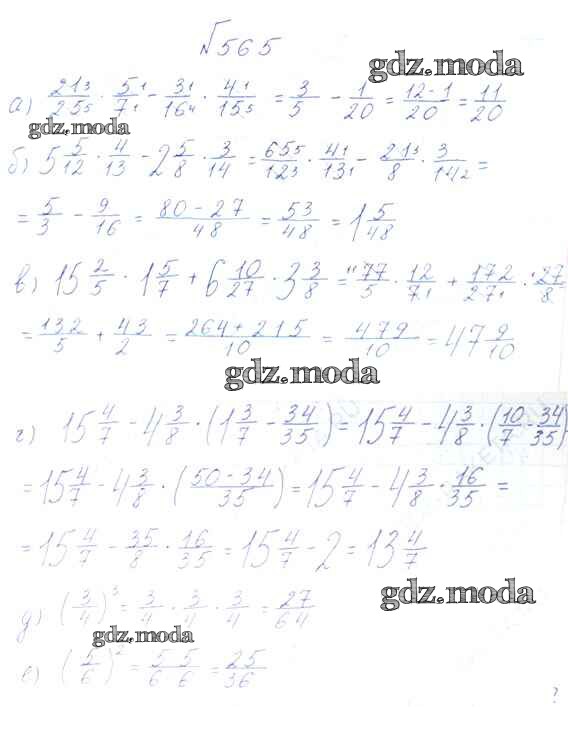 №565
gdz.moda
а) 21³/25₅ · 5¹/7₁ - 3¹/16₄ · 4¹/15₅ = 3/5 - 1/20 = 12-1/20 = 11/20
gdz.moda
б) 5 5/12 · 4/13 - 2 5/8 · 3/14 = 65⁵/12₃ · 4¹/13₁ - 21³/8 · 3/14₂ =
= 5/3 - 9/16 = 80-27/48 = 53/48 = 1 5/48
в) 15 2/5 · 1 5/7 + 6 10/27 · 3 3/8 = ¹¹77/5 · 12/7₁ + 172/27₁ · ¹27/8
= 132/5 + 43/2 = 264+215/10 = 479/10 = 47 9/10
gdz.moda
г) 15 4/7 - 4 3/8 · (1 3/7 - 34/35) = 15 4/7 - 4 3/8 · (10/7 - 34/35)
= 15 4/7 - 4 3/8 · (50-34/35) = 15 4/7 - 4 3/8 · 16/35 =
= 15 4/7 - 35/8 · 16/35 = 15 4/7 - 2 = 13 4/7
д) (3/4)³ = 3/4 · 3/4 · 3/4 = 27/64
gdz.moda
gdz.moda
е) (5/6)² = 5/6 5/6 = 25/36
?